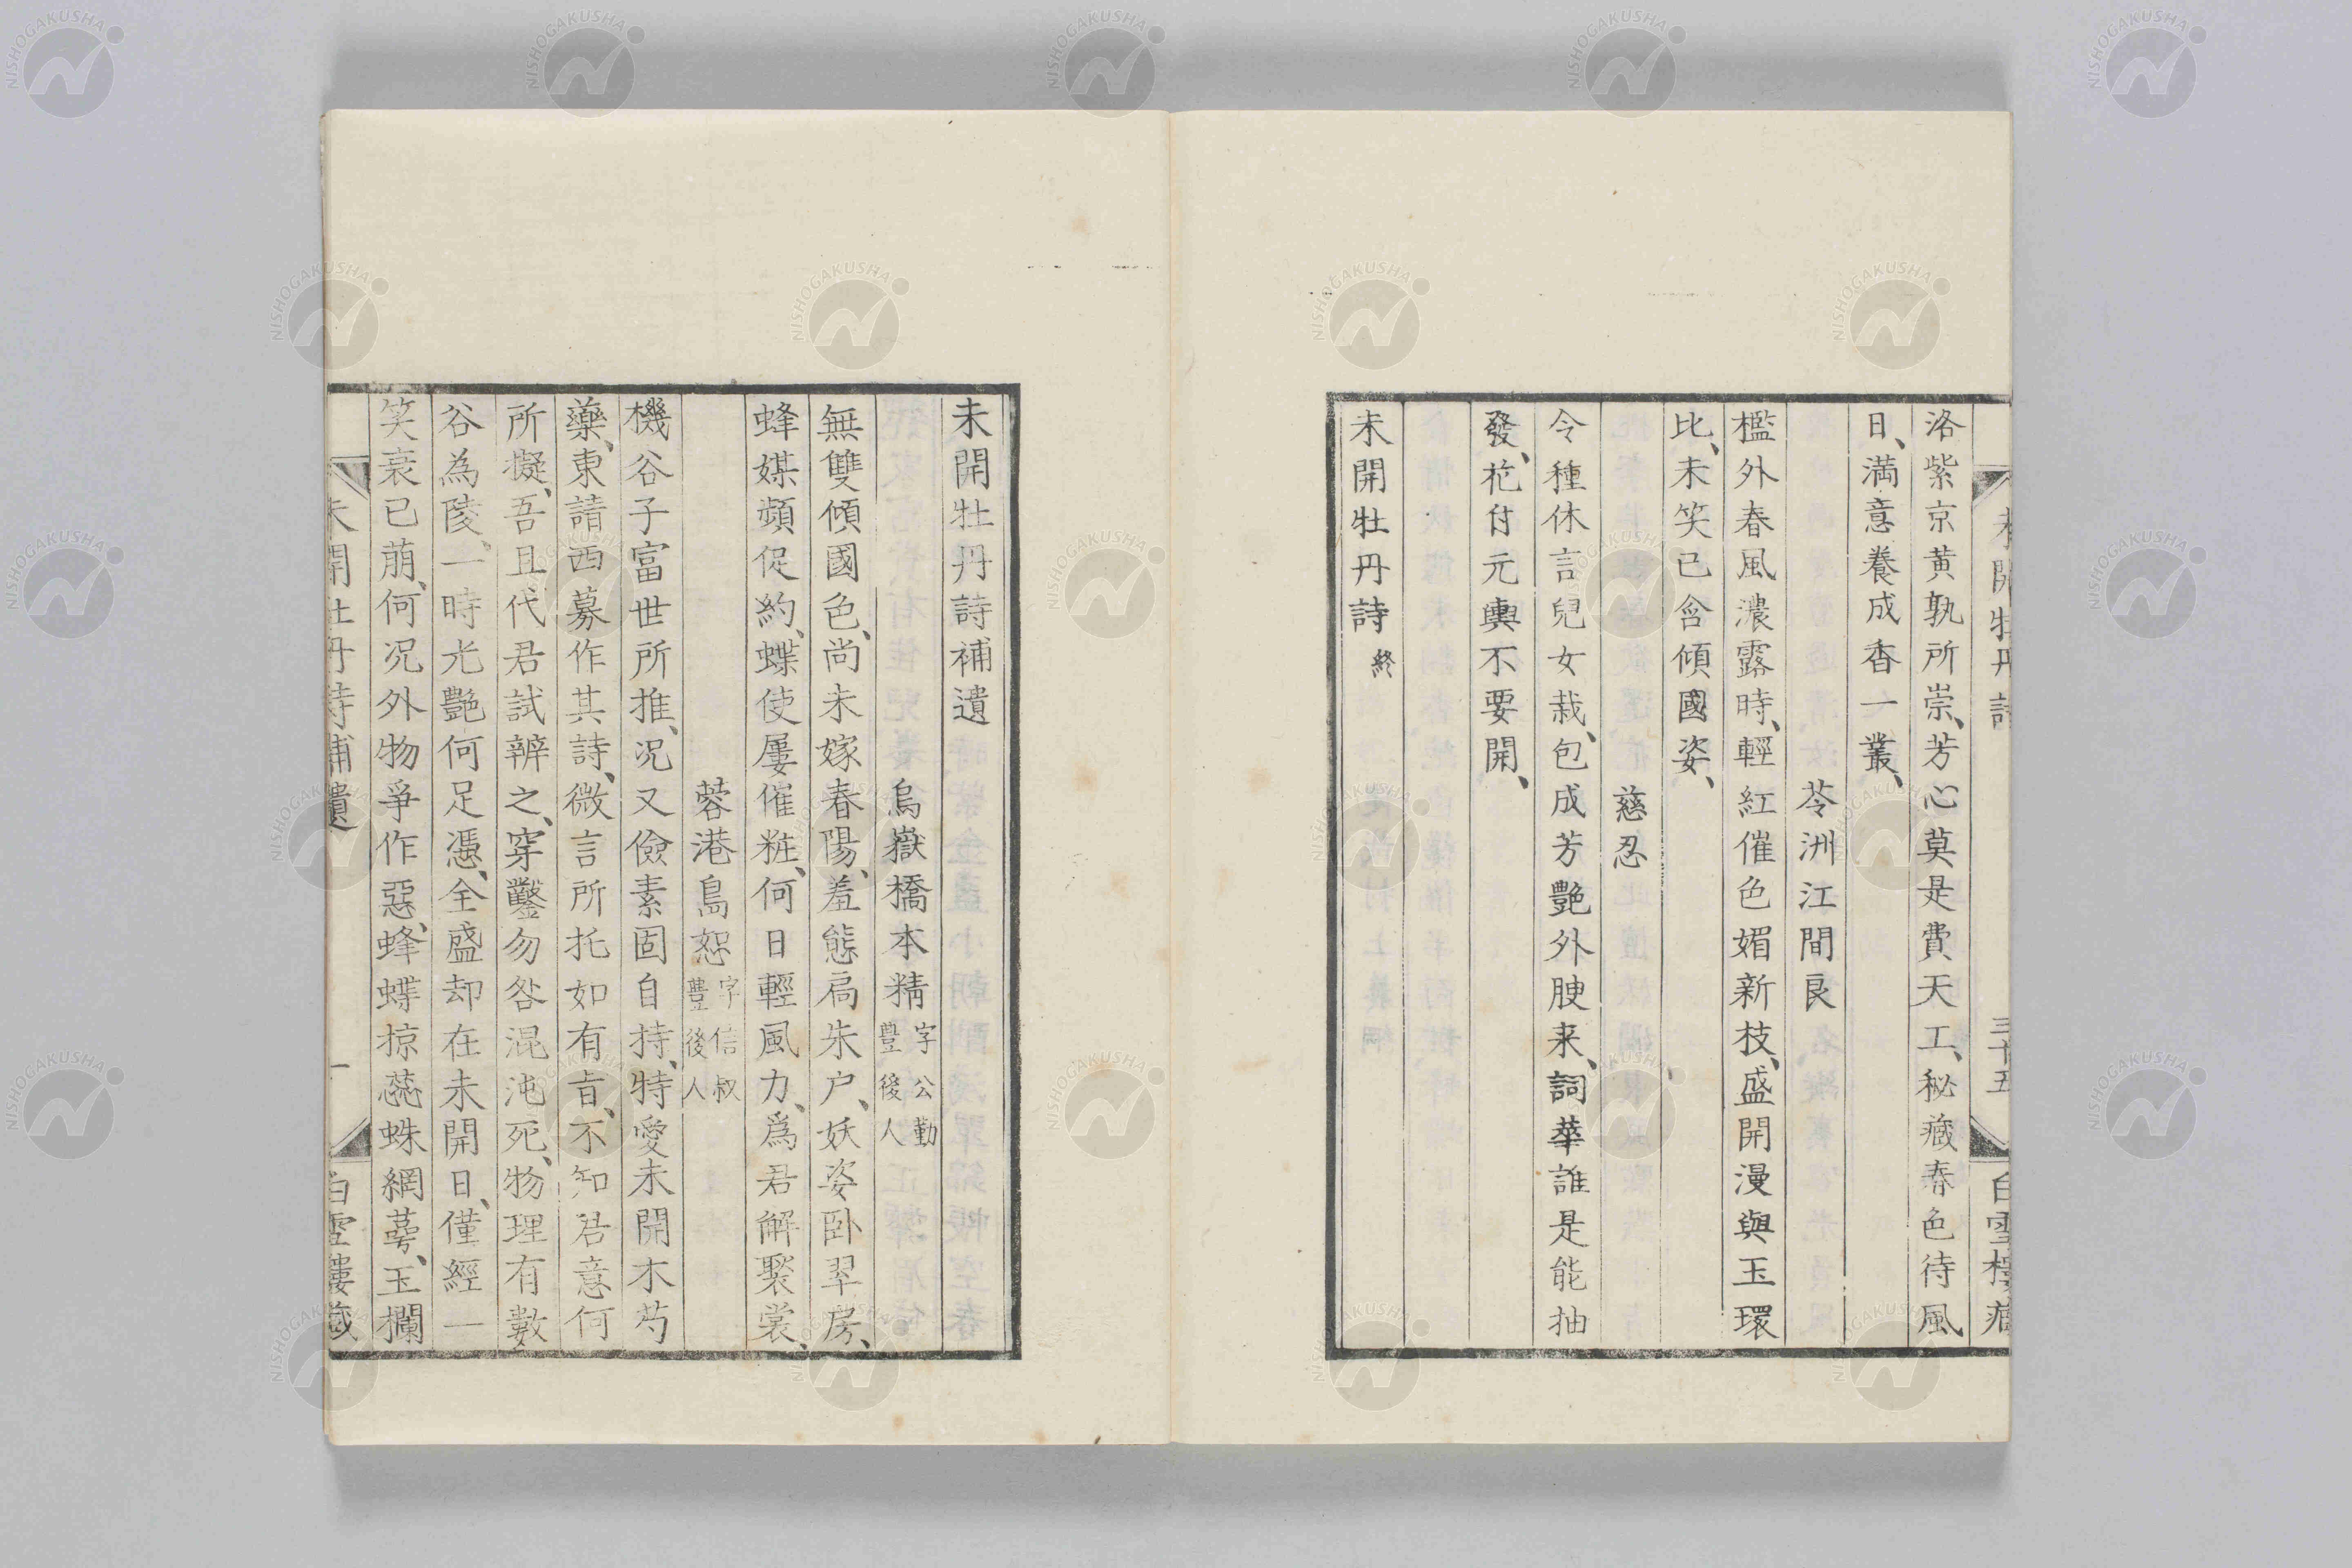 未開牡丹詩
三十五
白雪樓藏
洛紫京黄孰所崇、芳心莫是費天工、秘藏春色待風
日、満意養成香一叢、
苓洲江間良
檻外春風濃露時、輕紅催色媚新枝、盛開漫與玉環
比、未笑已含傾國姿、
慈忍
令種休言兒女栽、包成芳艶外腴来、詞華誰是能抽
發、花付元輿不要開、
未開牡丹詩終
未開牡丹詩補遺
烏嶽橋本精 字公勤豐後人
無雙傾國色、尚未嫁春陽、羞態扃朱户、妖姿卧翠房、
蜂媒頻促約、蝶使屢催粧、何日輕風力、爲君解褧裳、
蓉港島恕 字信叔豐後人
機谷子富世所推、况又儉素固自持、特愛未開木芍
藥、東請西募作其詩、微言所托如有旨、不知君意何
所擬、吾且代君試辨之、穿鑿勿咎混沌死、物理有數
谷為陵、一時光艶何足憑、全盛却在未開日、僅經一
笑衰已萠、何况外物爭作惡、蜂蝶掠蕊蛛網蕚、玉欄
未開牡丹詩補遺
一
白雪樓藏
NISHOGAKUSHA